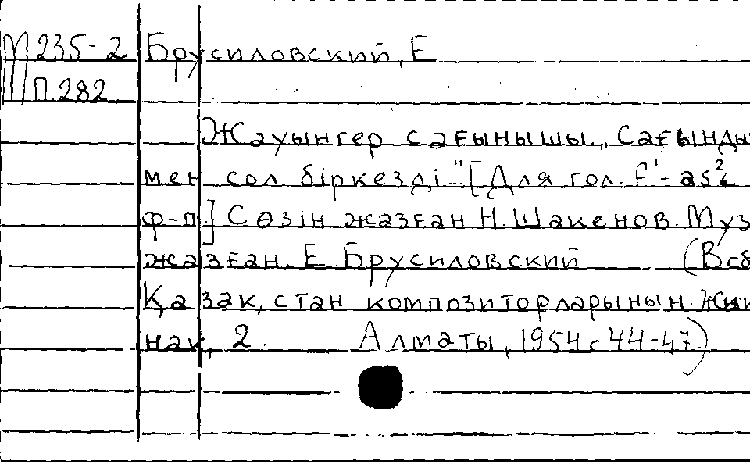 М 235-2 Брусиловский, Е
П.282
Жауынгер сағынышы. "Сағынды
мен сол бір кезді" [Для гол. f'-as²
ф-п.] Сөзін жазған Н. Шакенов. Муз
жазған Е Брусиловский (В сб
Қазақстан композиторларынын Жи
нақ, 2 Алматы, 1954 с 44-47)